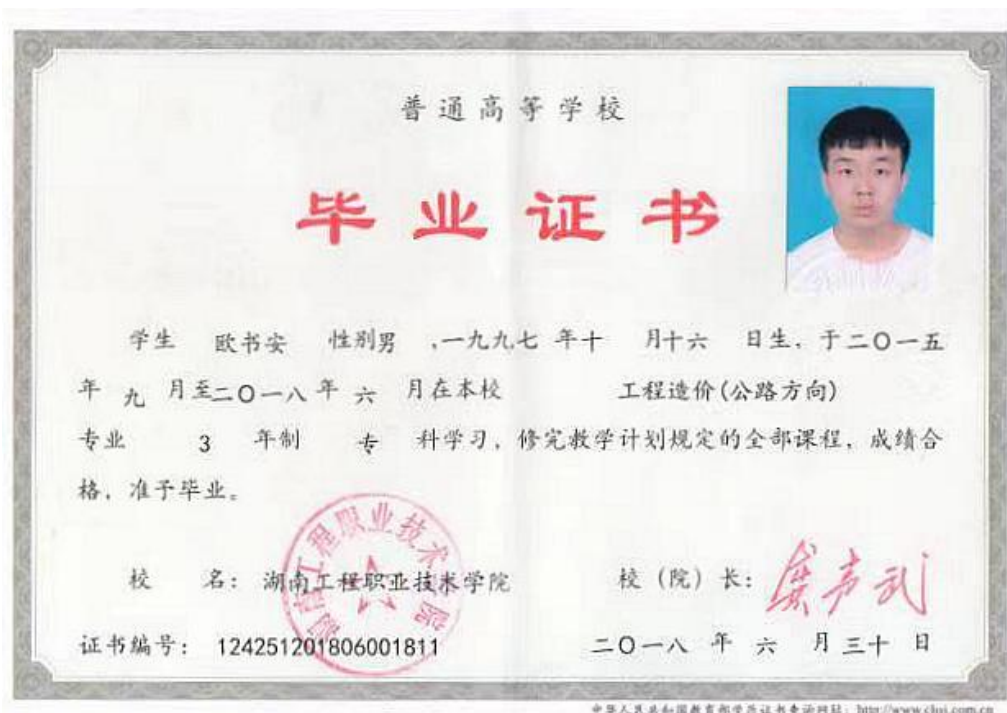 普通高等学校
毕业证书
学生 欧书安 性别男 ,一九九七 年十 月十六 日生, 于二〇一五
年 九 月至二〇一八年 六 月在本校 工程造价(公路方向)
专业 3 年制 专 科学习, 修完教学计划规定的全部课程, 成绩合
格, 准予毕业。
湖南工程职业技术学院
校 名: 湖南工程职业技术学院 校 (院) 长: 龚声武
证书编号: 124251201806001811 二〇一八 年 六 月 三十 日
中华人民共和国教育部学历证书查询网址: http://www.chsi.com.cn